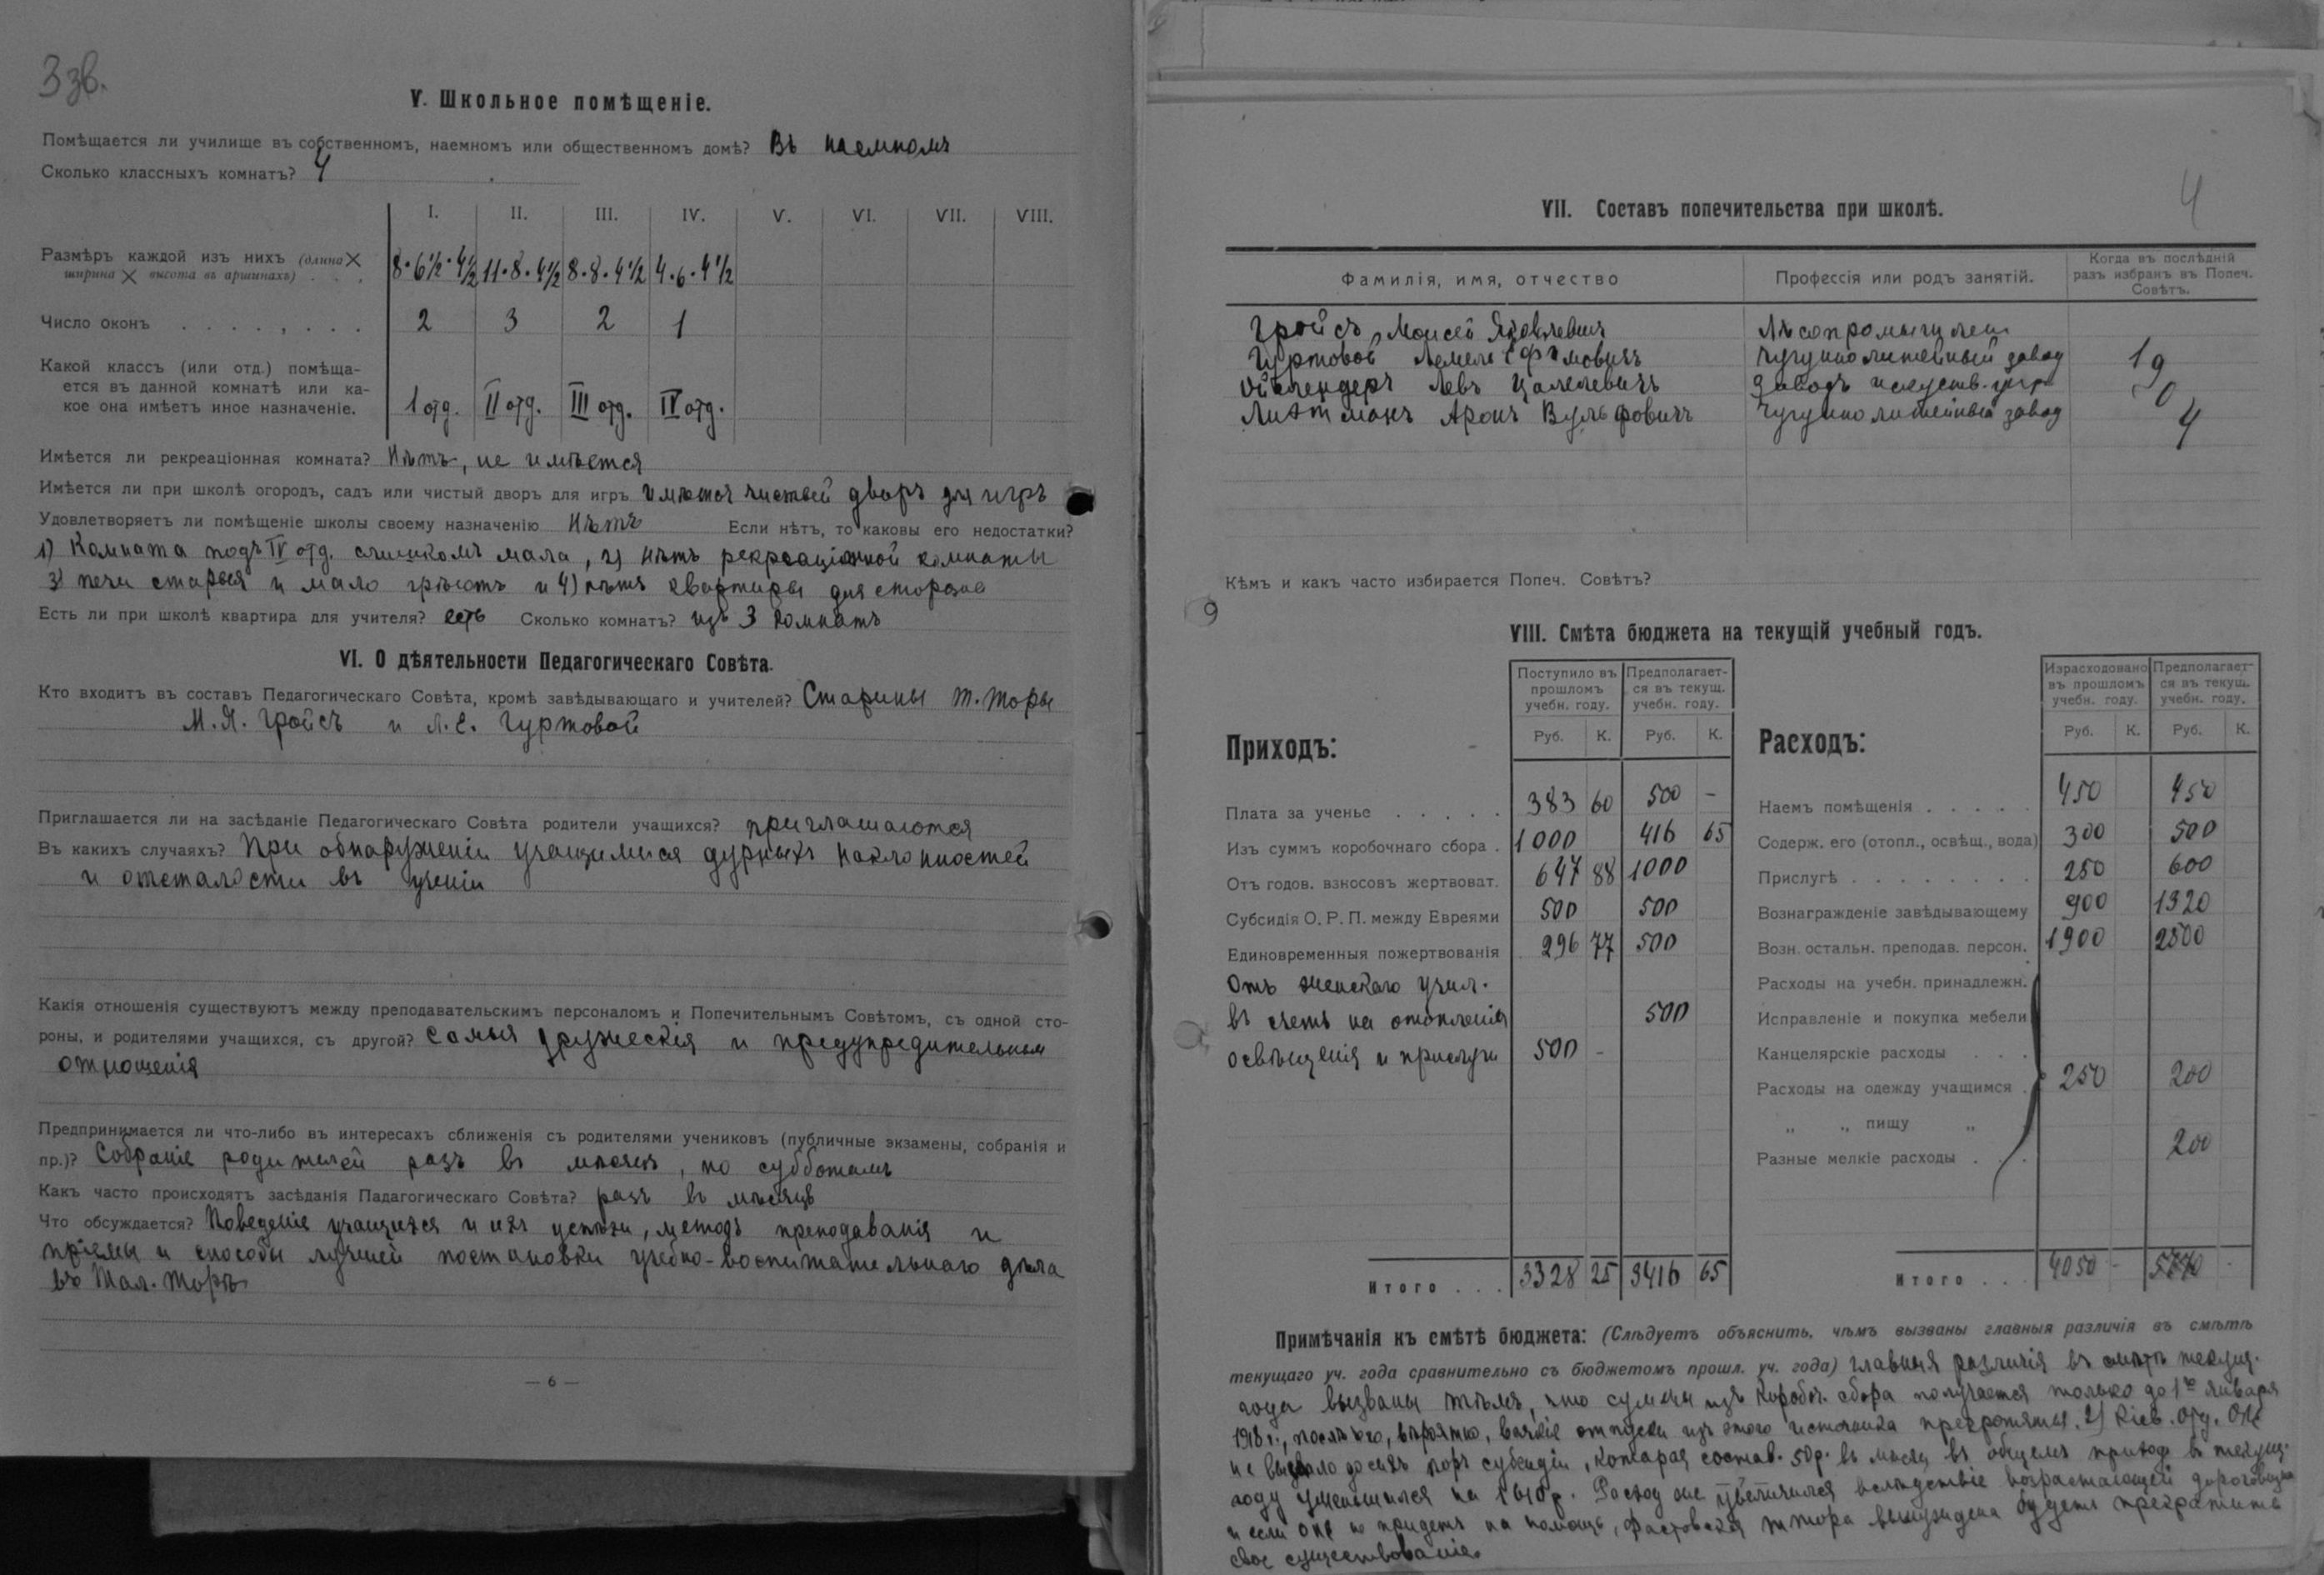 3 зв.
V. Школьное помѣщеніе.
Помѣщается ли училище въ собственномъ, наемномъ или общественномъ домѣ? Въ наемномъ
Сколько классныхъ комнатъ? 4
I. II. III. IV. V. VI. VII. VIII.
Размѣръ каждой изъ нихъ (длина ×
ширина × высота въ аршинахъ) . . . 8·6½·4½ 11·8·4½ 8·8·4½ 4·6·4½
Число оконъ . . . . . . . . 2 3 2 1
Какой классъ (или отд.) помѣща-
ется въ данной комнатѣ или ка-
кое она имѣетъ иное назначеніе. I отд. II отд. III отд. IV отд.
Имѣется ли рекреаціонная комната? Нѣтъ, не имѣется
Имѣется ли при школѣ огородъ, садъ или чистый дворъ для игръ имѣется чистый дворъ для игръ
Удовлетворяетъ ли помѣщеніе школы своему назначенію Нѣтъ Если нѣтъ, то каковы его недостатки?
1) Комната подъ IV отд. слишкомъ мала, 2) нѣтъ рекреаціонной комнаты
3) печи старыя и мало грѣютъ и 4) нѣтъ квартиры для сторожа
Есть ли при школѣ квартира для учителя? есть Сколько комнатъ? изъ 3 комнатъ
VI. О дѣятельности Педагогическаго Совѣта.
Кто входитъ въ составъ Педагогическаго Совѣта, кромѣ завѣдывающаго и учителей? Старшины Т. Торы
М. Я. Гройсъ и Л. Е. Гуртовой
Приглашается ли на засѣданіе Педагогическаго Совѣта родители учащихся? приглашаются
Въ какихъ случаяхъ? При обнаруженіи учащимися дурныхъ наклонностей
и отсталости въ ученіи
Какія отношенія существуютъ между преподавательскимъ персоналомъ и Попечительнымъ Совѣтомъ, съ одной сто-
роны, и родителями учащихся, съ другой? Самыя дружескія и предупредительныя
отношенія
Предпринимается ли что-либо въ интересахъ сближенія съ родителями учениковъ (публичные экзамены, собранія и
пр.)? Собранія родителей разъ въ мѣсяцъ, по субботамъ
Какъ часто происходятъ засѣданія Падагогическаго Совѣта? разъ въ мѣсяцъ
Что обсуждается? Поведеніе учащихся и ихъ успѣхи, методъ преподаванія и
пріемы и способы лучшей постановки учебно-воспитательнаго дѣла
въ Тал. Торѣ
— 6 —
4
VII. Составъ попечительства при школѣ.
Фамилія, имя, отчество Профессія или родъ занятій. Когда въ послѣдній
разъ избранъ въ Попеч.
Совѣтъ.
Гройсъ, Моисей Яковлевичъ Лѣсопромышлен
Гуртовой Лемель Ефимовичъ Чугуннолитейный завод 19
Левъ Заводъ искуств. 0
Литманъ Аронъ Вульфовичъ Чугуннолитейный завод 4
Кѣмъ и какъ часто избирается Попеч. Совѣтъ?
9
VIII. Смѣта бюджета на текущій учебный годъ.
Приходъ: Поступило въ прошломъ учебн. году. Предполагает-ся въ текущ. учебн. году.
Руб. К. Руб. К.
Плата за ученье . . . . . 383 60 500 -
Изъ суммъ коробочнаго сбора . 1000 416 65
Отъ годов. взносовъ жертвоват. 647 88 1000
Субсидія О. Р. П. между Евреями 500 500
Единовременныя пожертвованія 296 77 500
Отъ женскаго учил.
въ счетъ на отопленія 500
освѣщенія и прислуги 500 -
Итого . . . 3328 25 3416 65
Расходъ: Израсходовано въ прошломъ учебн. году. Предполагает-ся въ текущ. учебн. году.
Руб. К. Руб. К.
Наемъ помѣщенія . . . . . 450 450
Содерж. его (отопл., освѣщ., вода) 300 500
Прислугѣ . . . . . . . . 250 600
Вознагражденіе завѣдывающему 900 1320
Возн. остальн. преподав. персон. 1900 2500
Расходы на учебн. принадлежн.
Исправленіе и покупка мебели
Канцелярскіе расходы . . .
Расходы на одежду учащимся . 250 200
„ „ пищу „
Разные мелкіе расходы . . . 200
Итого . . . 4050 - 5770 -
Примѣчанія къ смѣтѣ бюджета: (Слѣдуетъ объяснить, чѣмъ вызваны главныя различія въ смѣтѣ
текущаго уч. года сравнительно съ бюджетомъ прошл. уч. года) Главныя различія въ смѣтѣ текущ.
года вызваны тѣмъ, что суммы изъ коробоч. сбора получается только до 1го января
1918 г., послѣ чего, вѣроятно, всякіе отпуски изъ этого источника прекратятся. 2) Кіев. Отд. ОПЕ
не выслало до сихъ поръ субсидіи, которая состав. 50 р. въ мѣсяц въ общемъ приход въ текущ.
году уменьшился на р. Расход же увеличился вслѣдствіе возрастающей дороговизны
и если ОПЕ не придетъ на помощь, Фастовская т. тора вынуждена будетъ прекратить
свое существованіе.